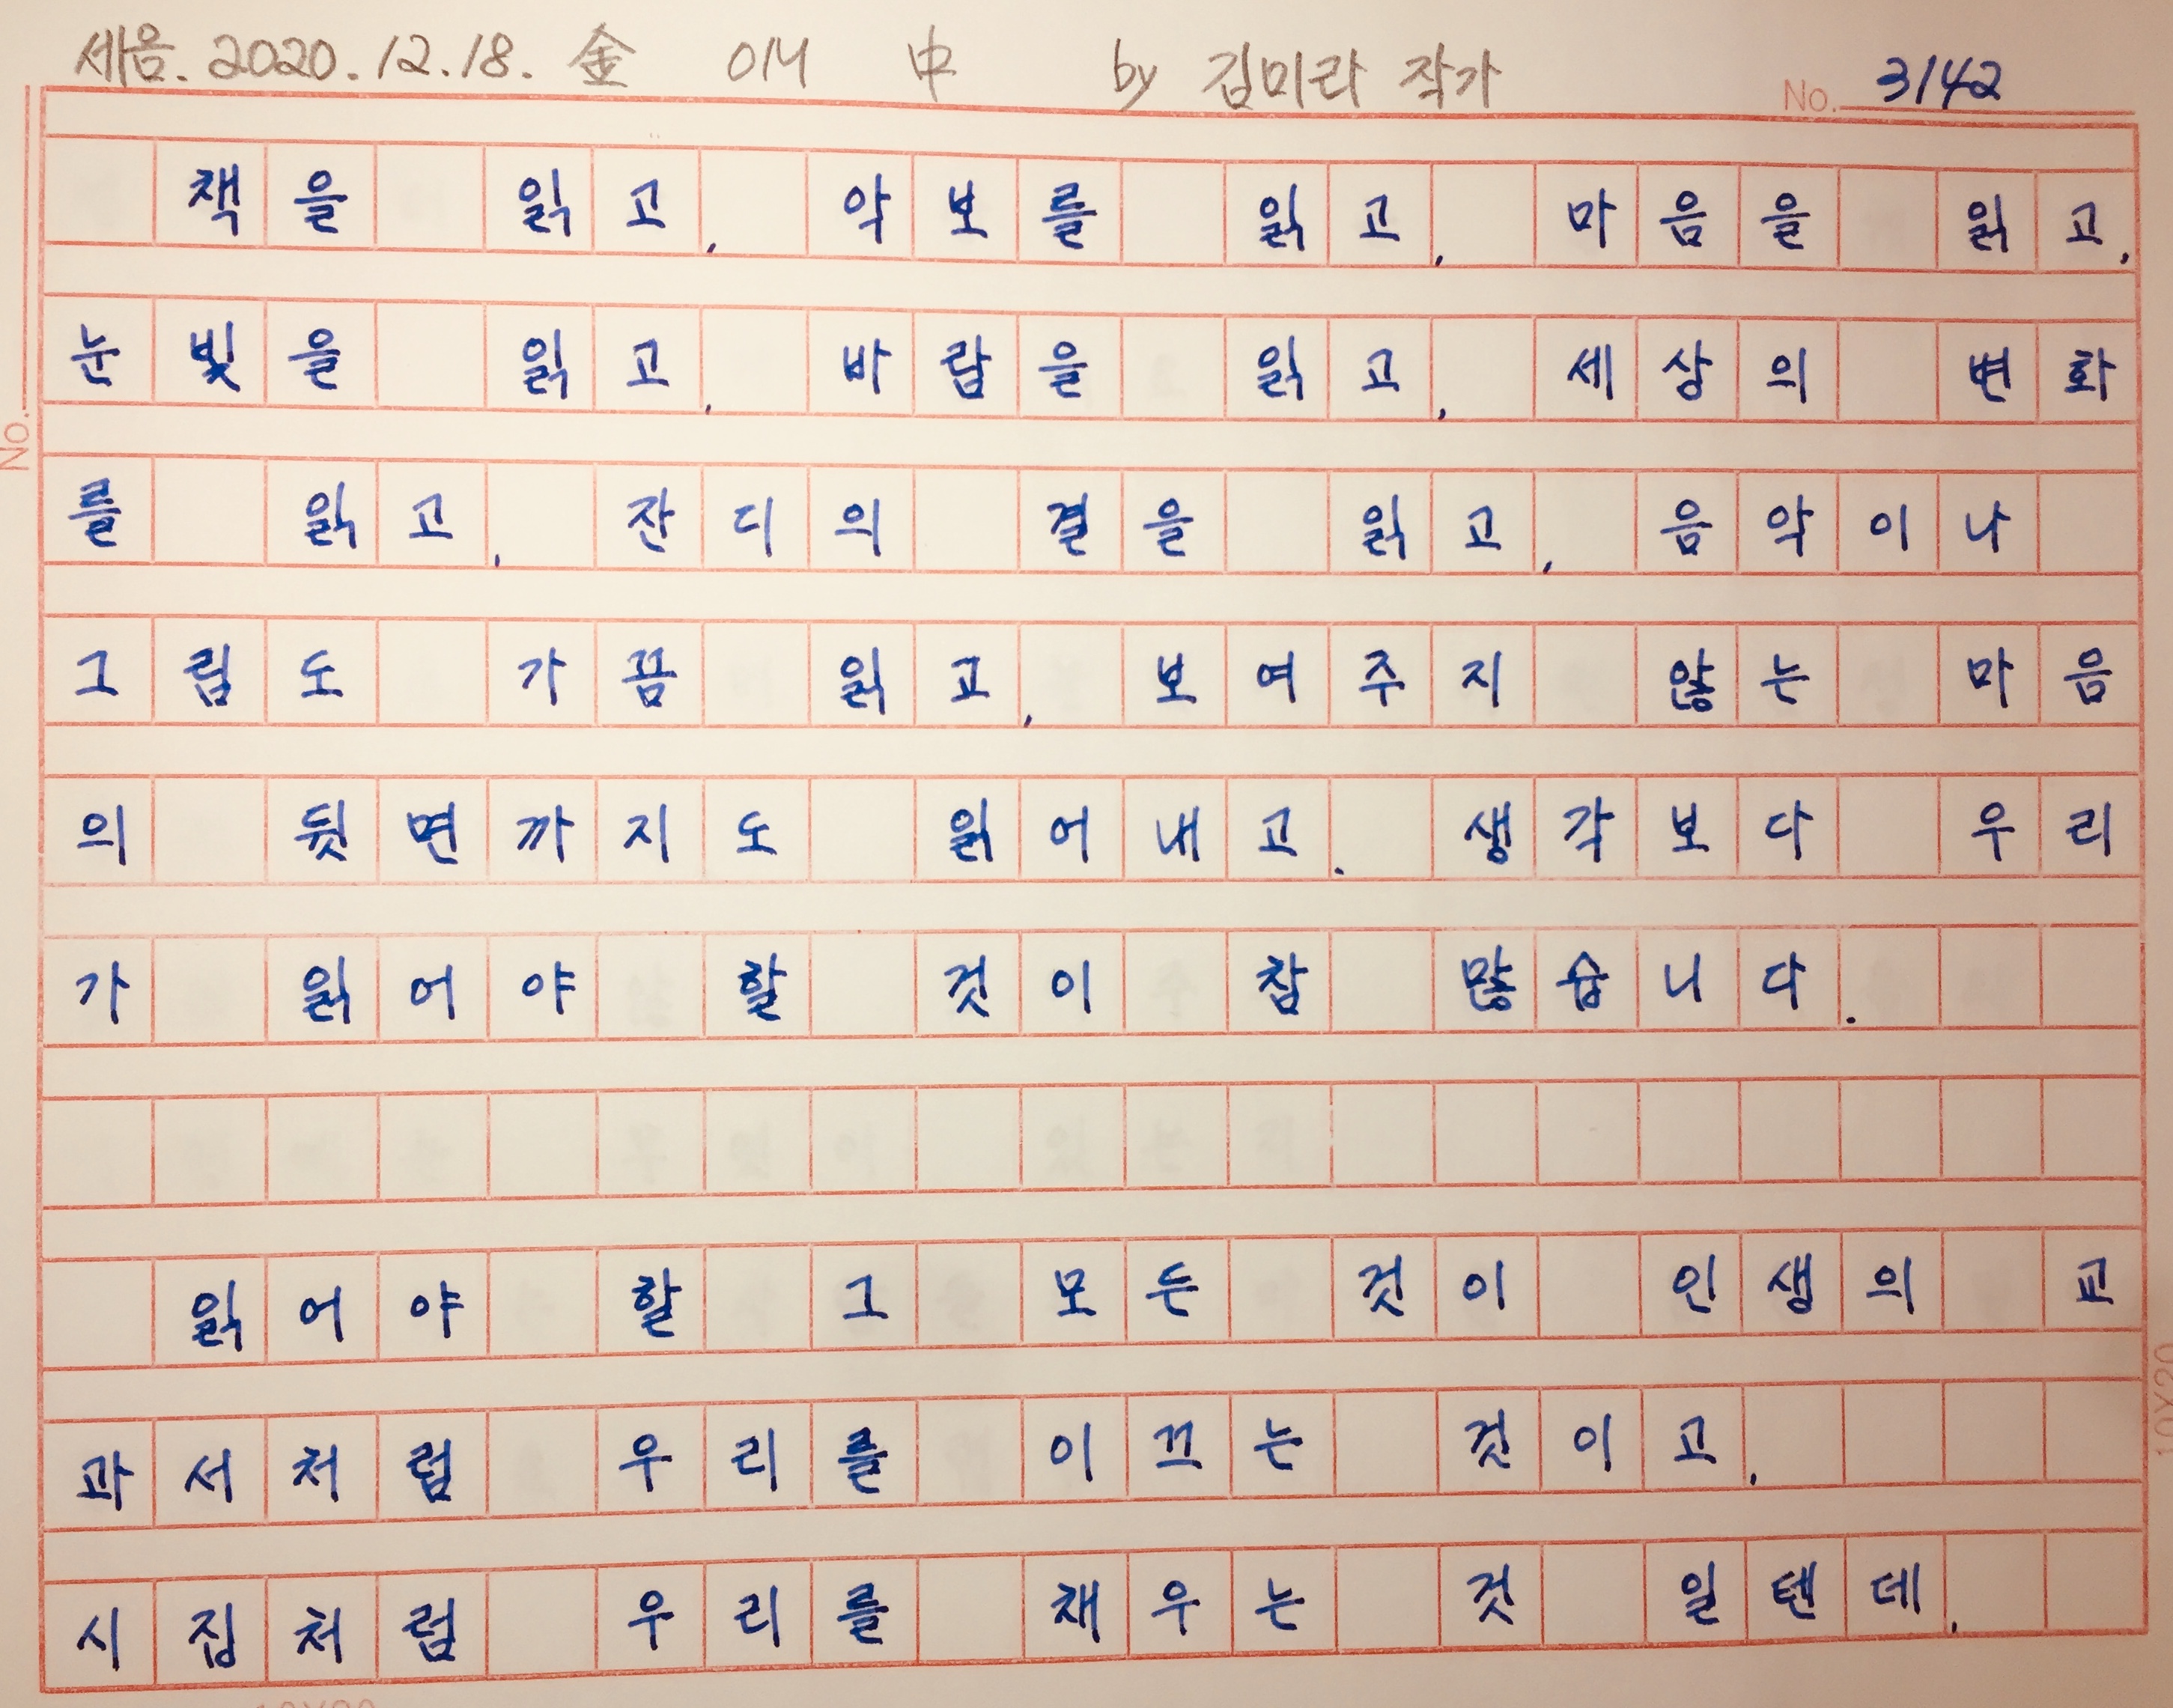 세음. 2020.12.18. 金 01M 中 by 김미라 작가 No. 3142
책을 읽고, 악보를 읽고, 마음을 읽고,
눈빛을 읽고, 바람을 읽고, 세상의 변화
를 읽고, 잔디의 결을 읽고, 음악이나
그림도 가끔 읽고, 보여주지 않는 마음
의 뒷면까지도 읽어내고. 생각보다 우리
가 읽어야 할 것이 참 많습니다.
읽어야 할 그 모든 것이 인생의 교
과서처럼 우리를 이끄는 것이고,
시집처럼 우리를 채우는 것 일텐데,
No.
10X20